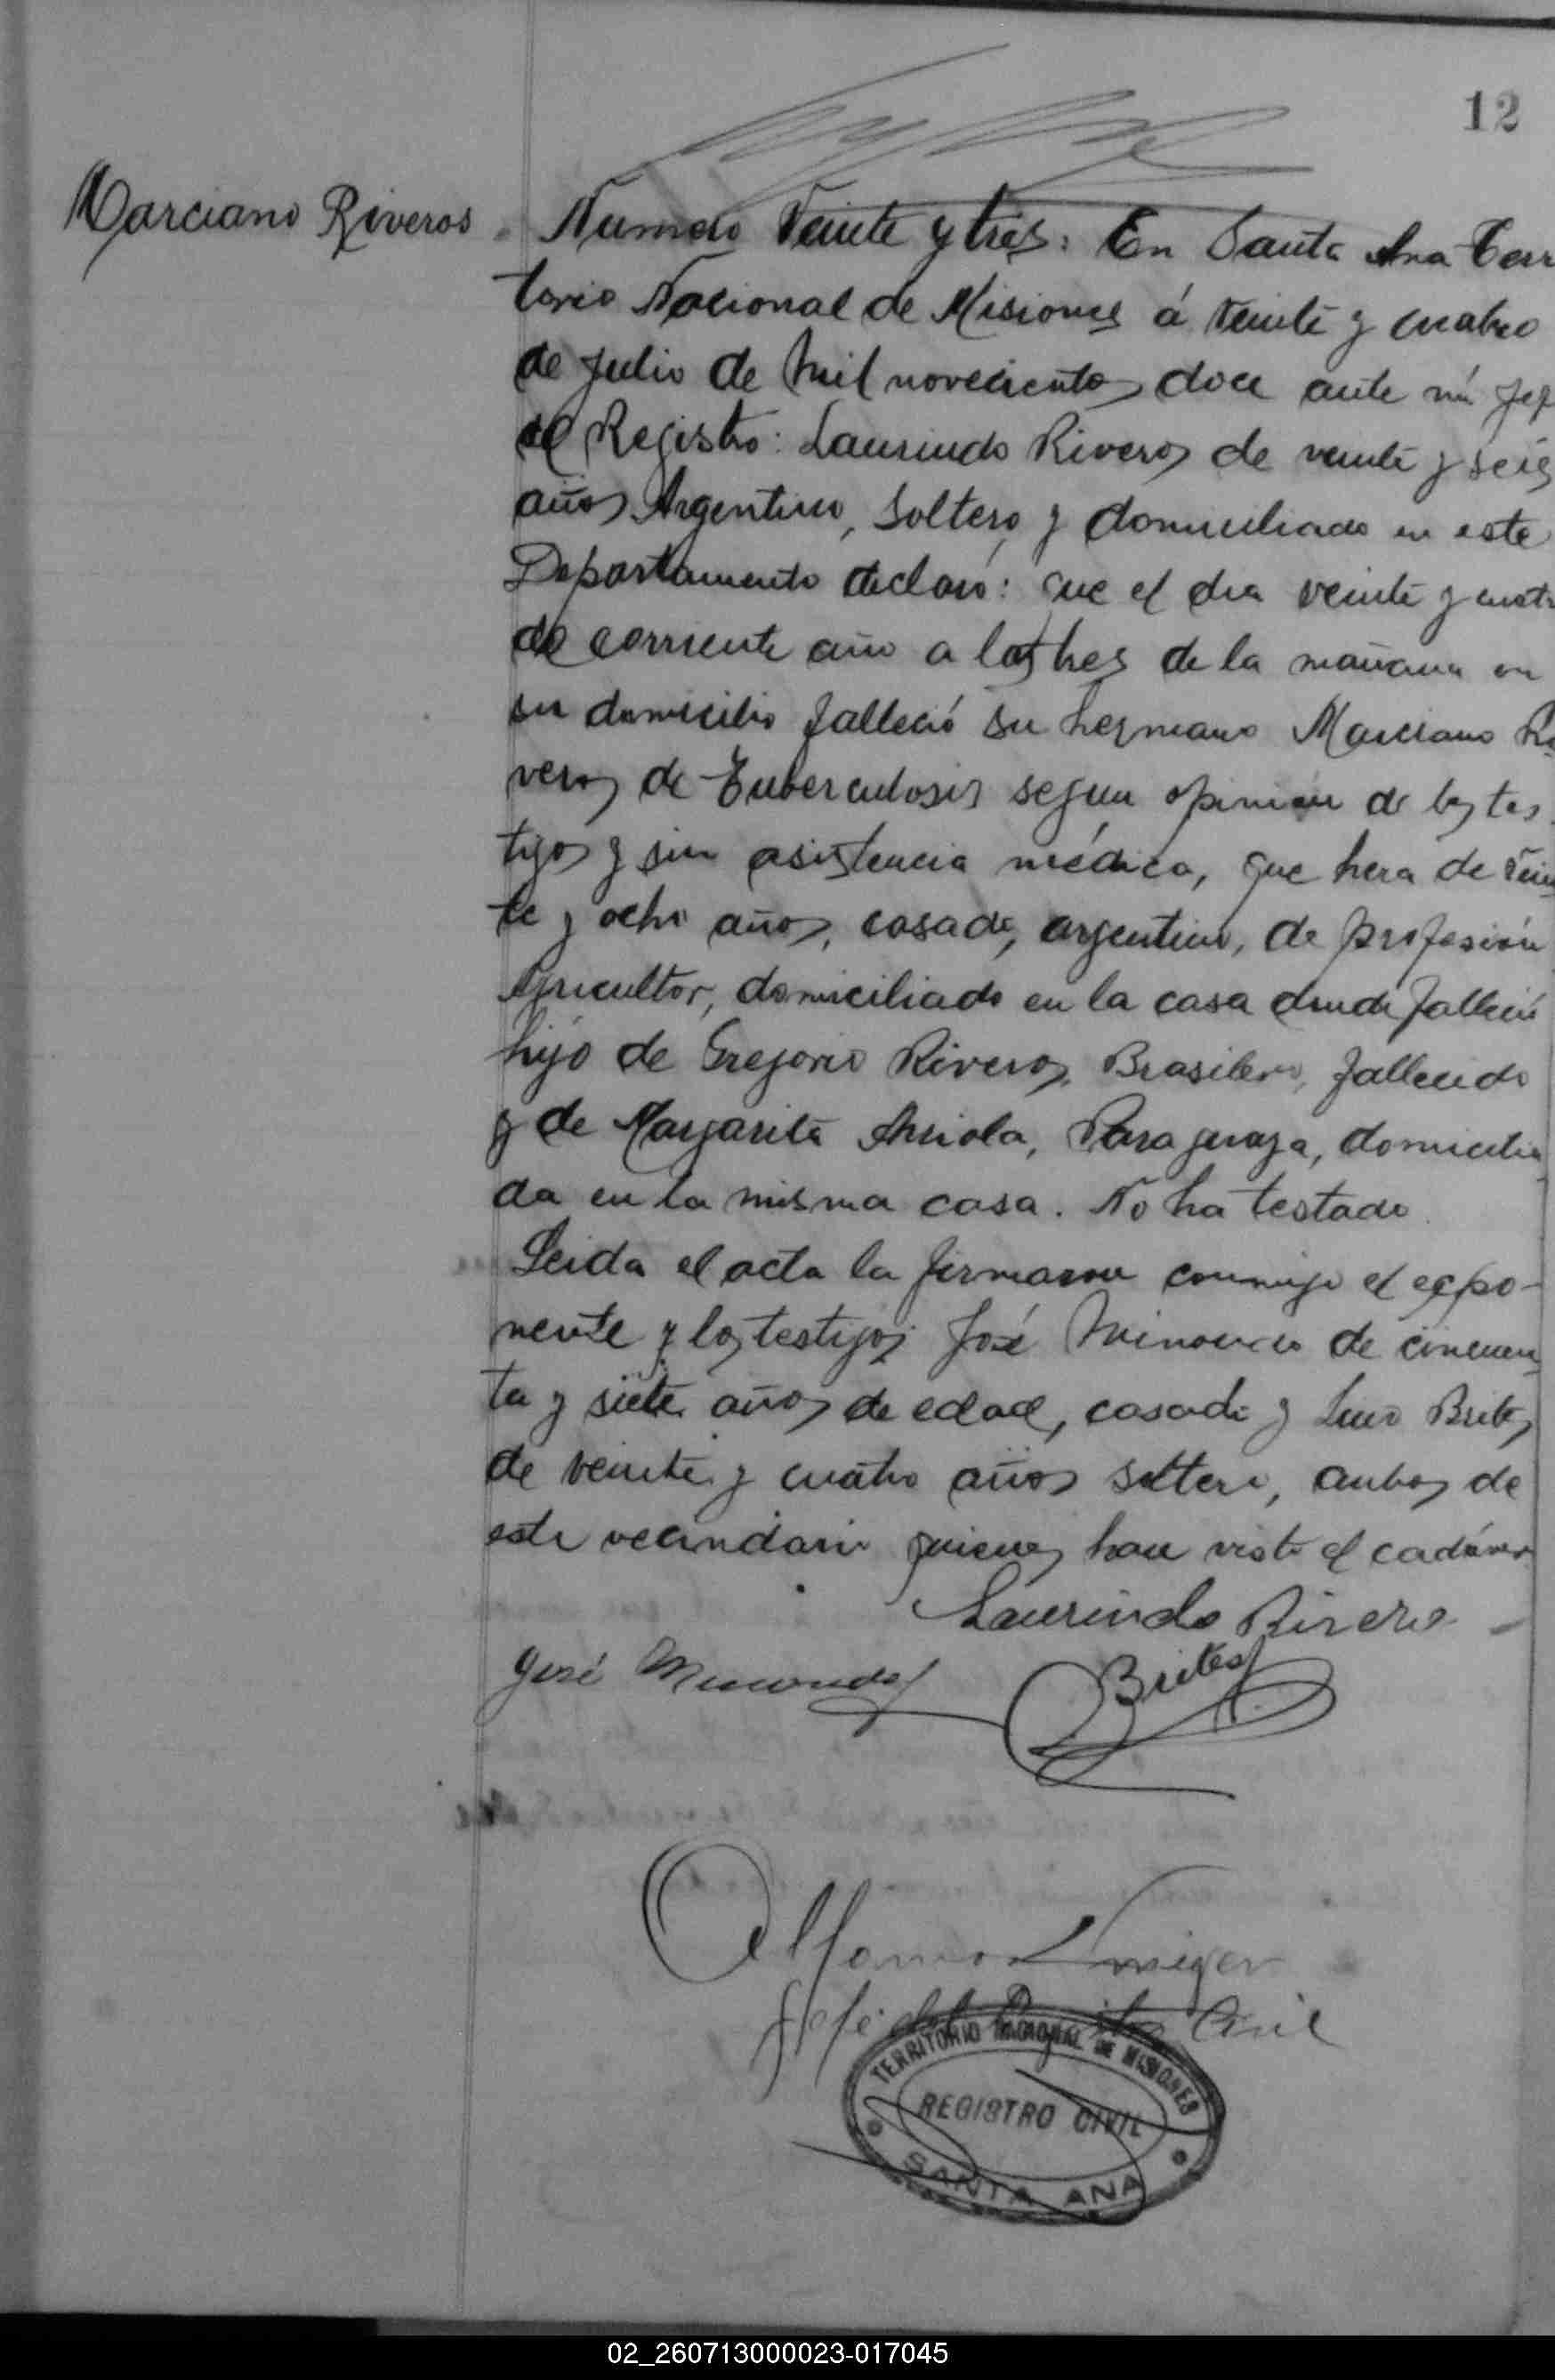 12
Marciano Riveros
Numero Veinte y tres: En Santa Ana Terri
torio Nacional de Misiones á veinte y cuatro
de Julio de mil novecientos doce ante mi Jefe
del Registro: Laurindo Riveros de veinte y seis
años Argentino, soltero y domiciliado en este
Departamento declaró: que el dia veinte y cuatro
del corriente año a las tres de la mañana en
su domicilio falleció su hermano Marciano Ri
veros de Tuberculosis segun opinión de los tes
tigos y sin asistencia médica, que hera de vein
te y ocho años, casado, argentino, de profesión
Agricultor, domiciliado en la casa donde falleció
hijo de Gregorio Riveros, Brasilero, fallecido
y de Margarita Arriola, Paraguaya, domicilia
da en la misma casa. No ha testado
Leida el acta la firmaron conmigo el expo-
nente y los testigos José de cincuen
ta y siete años de edad, casado y Lino Brites
de veinte y cuatro años soltero, ambos de
este vecindario quienes han visto el cadáver
Laurindo Rivero
José
Brites
Jefe del Registro Civil
TERRITORIO NACIONAL DE MISIONES
REGISTRO CIVIL
SANTA ANA
02_260713000023-017045